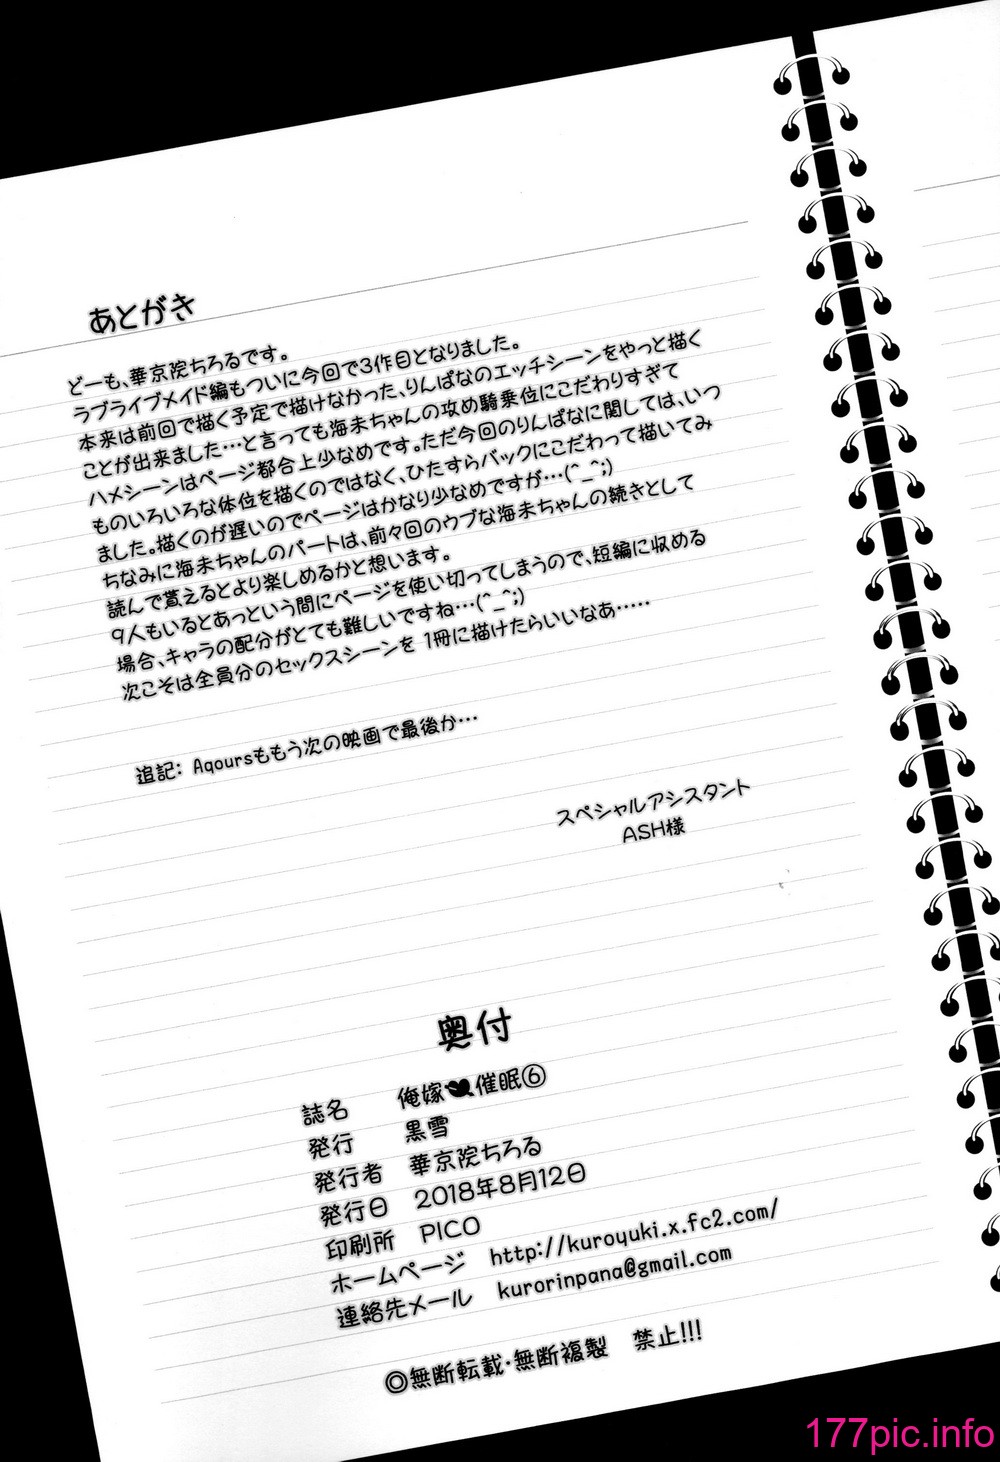 あとがき
どーも、華京院ちろるです。
ラブライブメイド編もついに今回で3作目となりました。
本来は前回で描く予定で描けなかった、りんぱなのエッチシーンをやっと描く
ことが出来ました…と言っても海未ちゃんの攻め騎乗位にこだわりすぎて
ハメシーンはページ都合上少なめです。ただ今回のりんぱなに関しては、いつ
ものいろいろな体位を描くのではなく、ひたすらバックにこだわって描いてみ
ました。描くのが遅いのでページはかなり少なめですが…(^_^;)
ちなみに海未ちゃんのパートは、前々回のウブな海未ちゃんの続きとして
読んで貰えるとより楽しめるかと想います。
9人もいるとあっという間にページを使い切ってしまうので、短編に収める
場合、キャラの配分がとても難しいですね…(^_^;)
次こそは全員分のセックスシーンを 1冊に描けたらいいなあ……
追記: Aqoursももう次の映画で最後か…
スペシャルアシスタント
ASH様
奥付
誌名 俺嫁催眠⑥
発行 黒雪
発行者 華京院ちろる
発行日 2018年8月12日
印刷所 PICO
ホームページ http://kuroyuki.x.fc2.com/
連絡先メール kurorinpana@gmail.com
◎無断転載・無断複製 禁止!!!
177pic.info